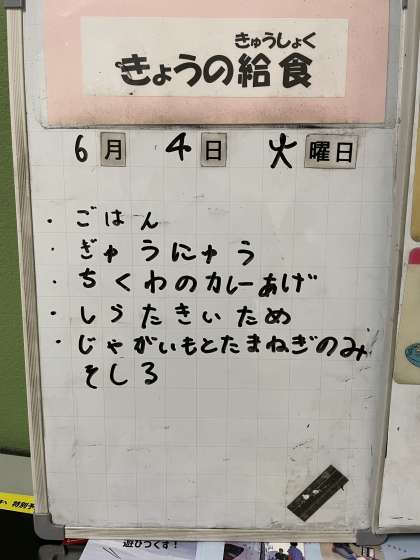 きゅうしょく
きょうの給食
6月 4日 火曜日
・ごはん
・ぎゅうにゅう
・ちくわのカレーあげ
・しらたきいため
・じゃがいもとたまねぎのみ
そしる
遊びつくす!